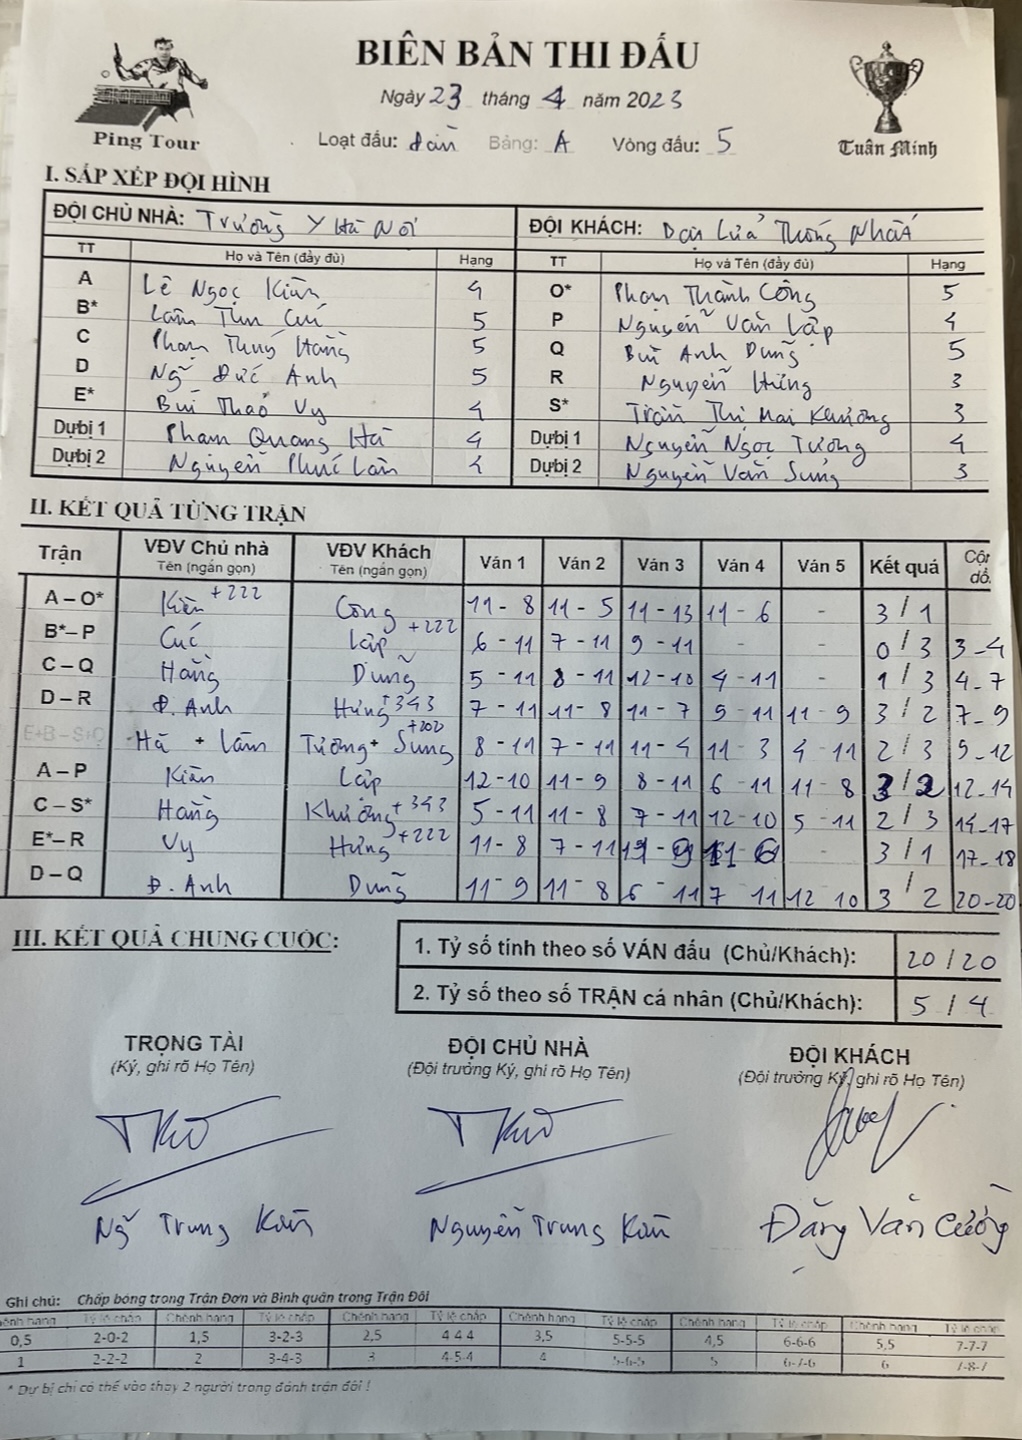 BIÊN BẢN THI ĐẤU
Ngày 23 tháng 4 năm 2023
Ping Tour
Loạt đấu: đàn Bảng: A Vòng đấu: 5
Tuân Minh
I. SẮP XẾP ĐỘI HÌNH
ĐỘI CHỦ NHÀ: Trường Y Hà Nội ĐỘI KHÁCH: Dọc Lửa Thống Nhất
TT Họ và Tên (đầy đủ) Hạng TT Họ và Tên (đầy đủ) Hạng
A Lê Ngọc Kiên 4 O* Phạm Thành Công 5
B* Lâm Thu Cúc 5 P Nguyễn Văn Lập 4
C Phạm Thuý Hằng 5 Q Bùi Anh Dũng 5
D Ng Đức Anh 5 R Nguyễn Hưng 3
E* Bùi Thảo Vy 4 S* Trần Thị Mai Khương 3
Dự bị 1 Phạm Quang Hà 4 Dự bị 1 Nguyễn Ngọc Tương 4
Dự bị 2 Nguyễn Phúc Lâm Dự bị 2 Nguyễn Văn Sung 3
II. KẾT QUẢ TỪNG TRẬN
Trận VĐV Chủ nhà Tên (ngắn gọn) VĐV Khách Tên (ngắn gọn) Ván 1 Ván 2 Ván 3 Ván 4 Ván 5 Kết quả Cộn dồ.
A – O* Kiên +222 Công 11 - 8 11 - 5 11 - 13 11 - 6 - 3 / 1
B* – P Cúc Lập +222 6 - 11 7 - 11 9 - 11 - - 0 / 3 3 - 4
C – Q Hằng Dũng 5 - 11 8 - 11 12 - 10 4 - 11 - 1 / 3 4 - 7
D – R Đ. Anh Hưng +343 7 - 11 11 - 8 11 - 7 9 - 11 11 - 9 3 / 2 7 - 9
E+B – S+Q Hà + Lâm Tương + Sung +202 8 - 11 7 - 11 11 - 4 11 - 3 4 - 11 2 / 3 9 - 12
A – P Kiên Lập 12 - 10 11 - 9 8 - 11 6 - 11 11 - 8 3 / 2 12 - 14
C – S* Hằng Khương +343 5 - 11 11 - 8 7 - 11 12 - 10 5 - 11 2 / 3 14 - 17
E* – R Vy Hưng +222 11 - 8 7 - 11 11 - 9 11 - 6 - 3 / 1 17 - 18
D – Q Đ. Anh Dũng 11 - 9 11 - 8 6 - 11 7 - 11 12 10 3 / 2 20 - 20
III. KẾT QUẢ CHUNG CUỘC:
1. Tỷ số tính theo số VÁN đấu (Chủ/Khách): 20 / 20
2. Tỷ số theo số TRẬN cá nhân (Chủ/Khách): 5 / 4
TRỌNG TÀI ĐỘI CHỦ NHÀ ĐỘI KHÁCH
(Ký, ghi rõ Họ Tên) (Đội trưởng Ký, ghi rõ Họ Tên) (Đội trưởng Ký, ghi rõ Họ Tên)
Ng Trung Kiên Nguyễn Trung Kiên Đặng Văn Cường
Ghi chú: Chấp bóng trong Trận Đơn và Bình quân trong Trận Đôi
Chênh hạng Tỷ lệ chấp Chênh hạng Tỷ lệ chấp Chênh hạng Tỷ lệ chấp Chênh hạng Tỷ lệ chấp Chênh hạng Tỷ lệ chấp Chênh hạng Tỷ lệ chấp
0,5 2-0-2 1,5 3-2-3 2,5 4 4 4 3,5 5-5-5 4,5 6-6-6 5,5 7-7-7
1 2-2-2 2 3-4-3 3 4-5-4 4 5-6-5 5 6-7-6 6 7-8-7
* Dự bị chỉ có thể vào thay 2 người trong đánh trận đôi !